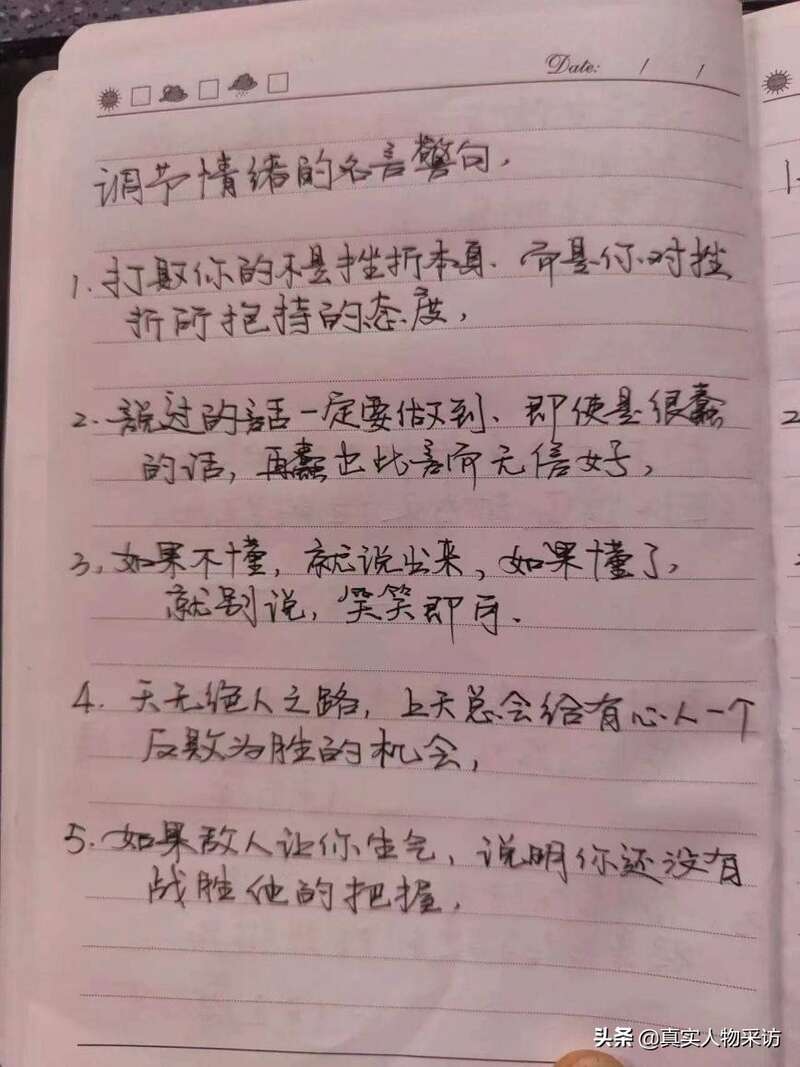 Date: / /
调节情绪的名言警句,
1. 打败你的不是挫折本身、而是你对挫
折所抱持的态度,
2. 説过的話一定要做到、即使是很蠢
的话, 再蠢也比善而无信好,
3, 如果不懂, 就说出来, 如果懂了,
就别说, 笑笑即可.
4. 天无绝人之路, 上天总会给有心人一个
反败为胜的机会,
5. 如果敌人让你生气、说明你还没有
战胜他的把握,
头条 @真实人物采访